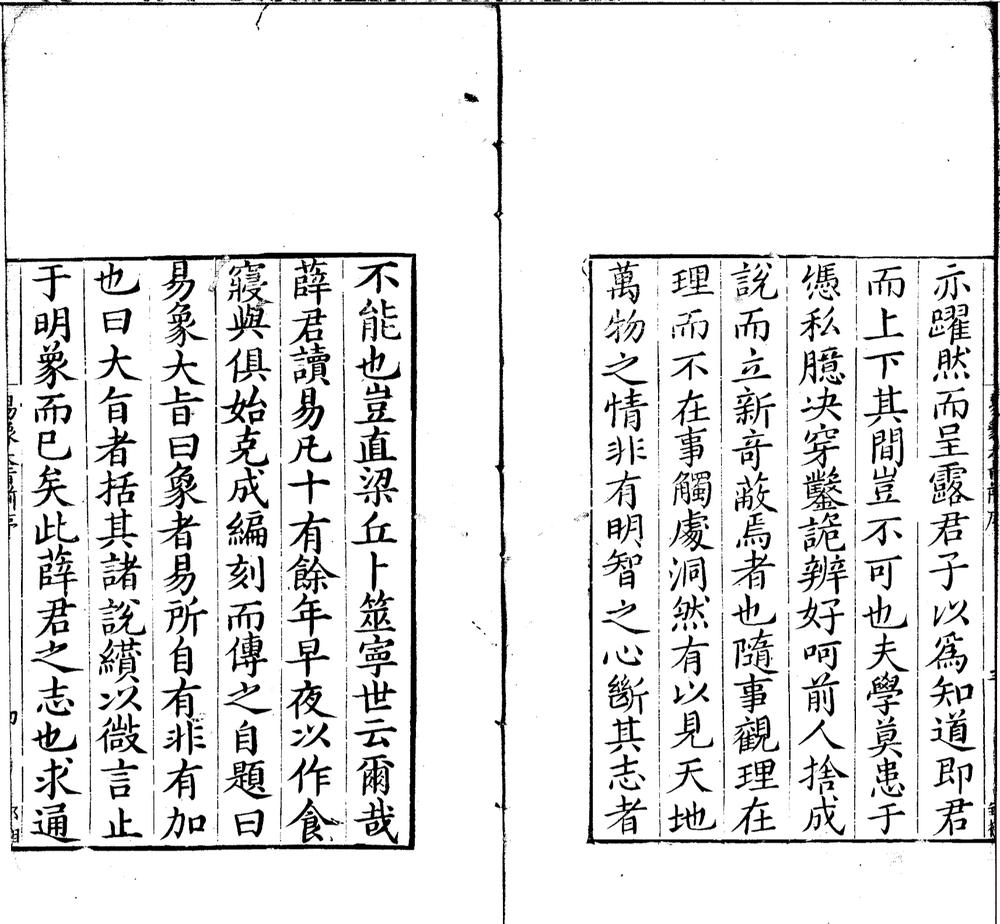 亦躍然而呈露君子以爲知道即君
而上下其間豈不可也夫學莫患于
憑私臆决穿鑿詭辨好呵前人捨成
說而立新奇蔽焉者也隨事觀理在
理而不在事觸處洞然有以見天地
萬物之情非有明智之心斷其志者
不能也豈直梁丘卜筮寧世云爾哉
薛君讀易凡十有餘年早夜以作食
寢與俱始克成編刻而傳之自題曰
易象大旨曰象者易所自有非有加
也曰大旨者括其諸說纉以微言止
于明象而已矣此薛君之志也求通